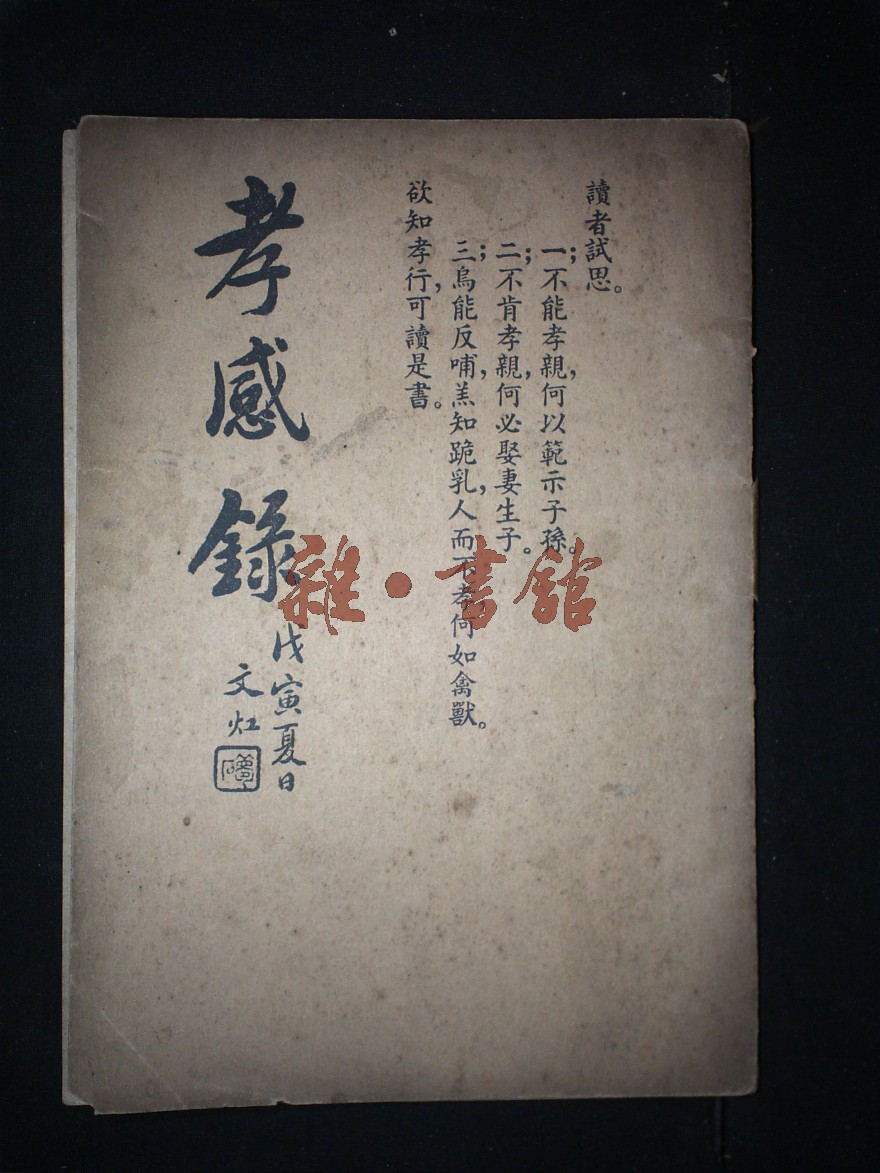 讀者試思。
一；不能孝親，何以範示子孫。
二；不肯孝親，何必娶妻生子。
三；烏能反哺，羔知跪乳，人而不孝何如禽獸。
欲知孝行，可讀是書。
孝感錄
戊寅夏日
文灴
雜·書館